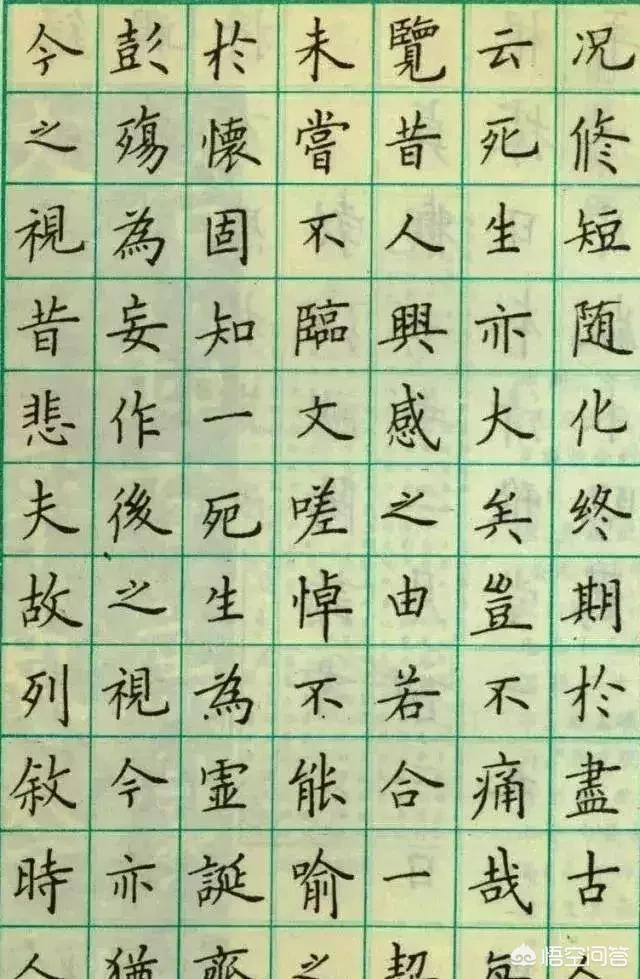 况修短随化終期於盡古人
云死生亦大矣豈不痛哉每
覽昔人興感之由若合一契
未嘗不臨文嗟悼不能喻之
於懷固知一死生為虚誕齊
彭殤為妄作後之視今亦猶
今之視昔悲夫故列敘時人
悟空问答